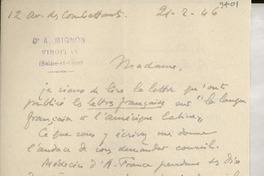 12 av. des Combattants. 21-2-46
Dr A. MIGNON
Madame,
je viens de lire la lettre qu'ont
publiée les lettres françaises sur "la langue
française à l'Amérique latine".
Ce que vous y écrivez me donne
l'audace de vous demander conseil.
Médecin d'A. France pendant dix